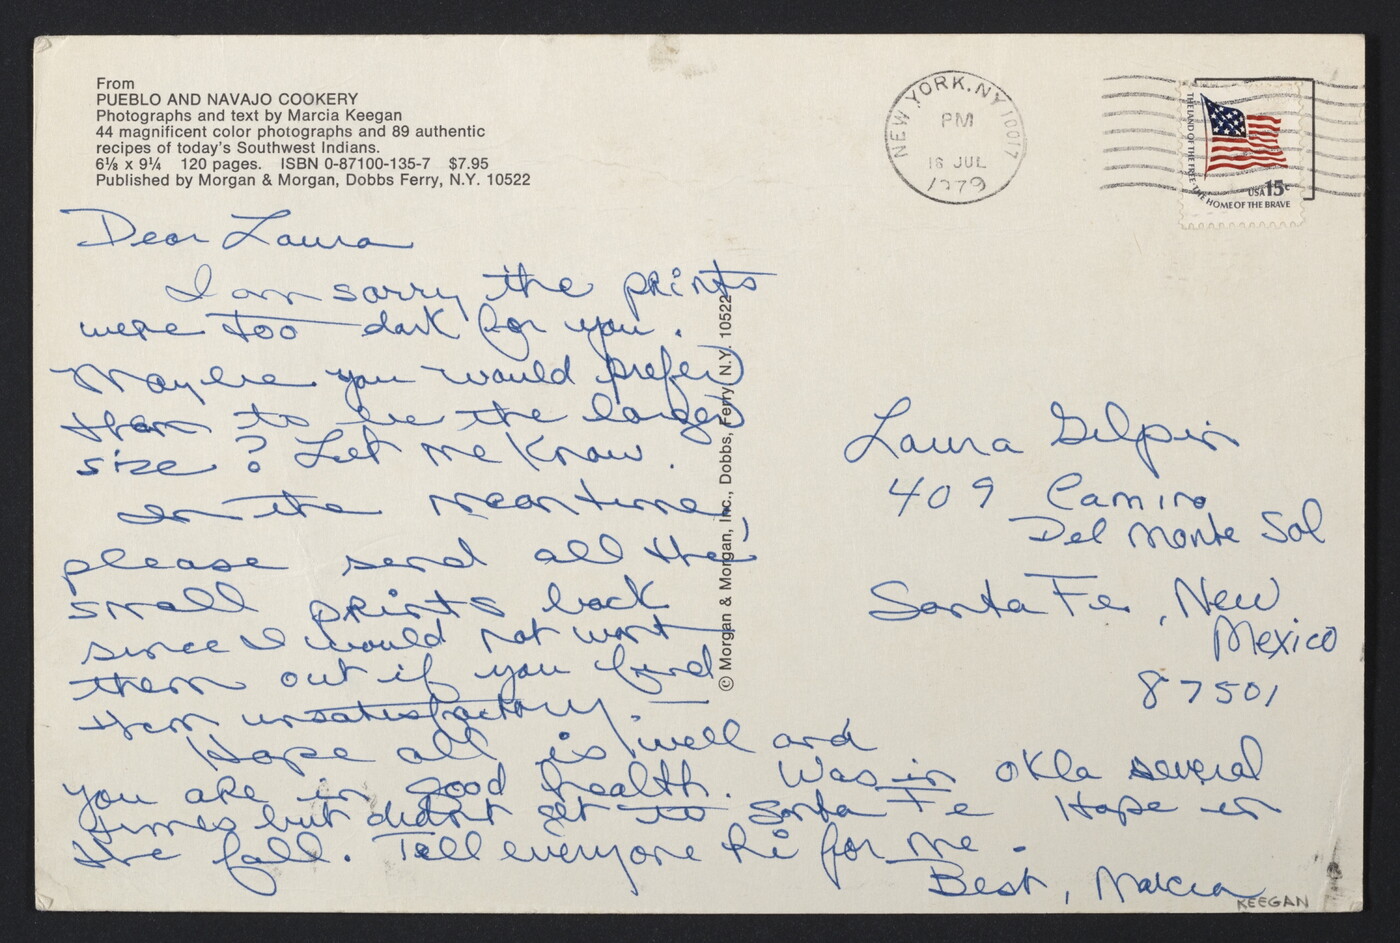 From
PUEBLO AND NAVAJO COOKERY
Photographs and text by Marcia Keegan
44 magnificent color photographs and 89 authentic
recipes of today's Southwest Indians.
6⅛ x 9¼ 120 pages. ISBN 0-87100-135-7 $7.95
Published by Morgan & Morgan, Dobbs Ferry, N.Y. 10522
NEW YORK, NY 10017
PM
16 JUL
1979
THE LAND OF THE FREE THE HOME OF THE BRAVE
USA 15c
Dear Laura
I am sorry the prints
were too dark for you.
Maybe you would prefer
them to be the larger
size? Let me know.
In the meantime,
please send all the
small prints back
since I would not want
them out if you find
them unsatisfactory.
Hope all is well and
you are in good health. Was in Okla several
times but didnt get to Santa Fe Hope in
the fall. Tell everyone hi for me.
Best, Marcia
KEEGAN
© Morgan & Morgan, Inc., Dobbs, Ferry, N.Y. 10522
Laura Gilpin
409 Camino
Del Monte Sol
Santa Fe, New
Mexico
87501